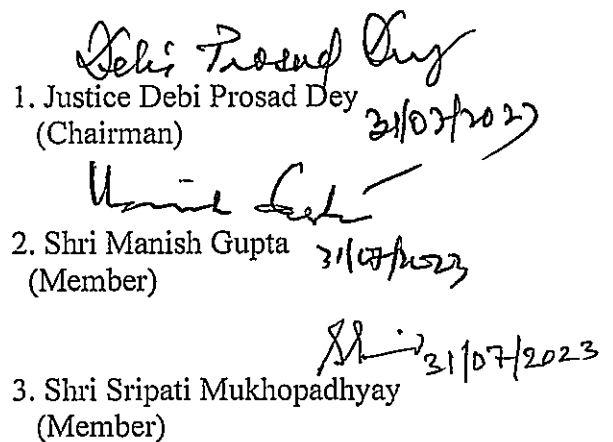 Debi Prosad Dey
1. Justice Debi Prosad Dey
31/07/2023
(Chairman)
2. Shri Manish Gupta
31/07/2023
(Member)
31/07/2023
3. Shri Sripati Mukhopadhyay
(Member)